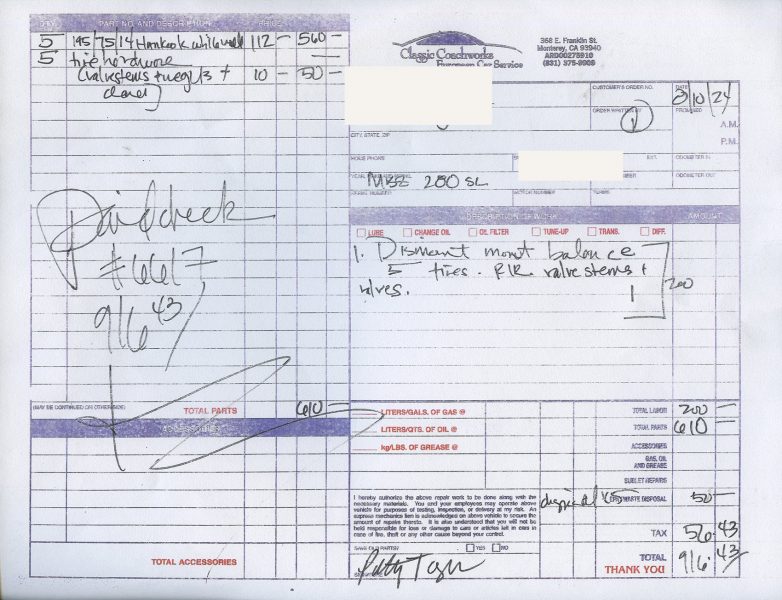 QTY. PART NO. AND DESCRIPTION PRICE
5 195/75/14 Hankook whitewall 112 - 560 -
5 tire hardware
(valvestems + weights + 10 - 50 -
Classic Coachworks
European Car Service
368 E. Franklin St.
Monterey, CA 93940
ARD00275910
CUSTOMER'S ORDER NO. DATE
/10/24
ORDER WRITTEN BY PROMISED
A.M.
P.M.
CITY, STATE, ZIP
HOME PHONE EXT. ODOMETER IN
ODOMETER OUT
MBZ 280 SL
MOTOR NUMBER TERMS
DESCRIPTION OF WORK AMOUNT
LUBE CHANGE OIL OIL FILTER TUNE-UP TRANS. DIFF.
1. Dismount mount balance
5 tires. R/R. valve stems +
200
Paid check
#6617
916 43
(MAY BE CONTINUED ON OTHER SIDE) TOTAL PARTS 610 -
ACCESSORIES
TOTAL ACCESSORIES
LITERS/GALS. OF GAS @
LITERS/QTS. OF OIL @
kg/LBS. OF GREASE @
TOTAL LABOR 200 -
TOTAL PARTS 610 -
ACCESSORIES
GAS, OIL
AND GREASE
SUBLET REPAIRS
disposal x5 WASTE DISPOSAL 50 -
TAX 56 43
TOTAL 916 43
THANK YOU
I hereby authorize the above repair work to be done along with the
necessary materials. You and your employees may operate above
vehicle for purposes of testing, inspection, or delivery at my risk. An
express mechanics lien is acknowledged on above vehicle to secure the
amount of repairs thereto. It is also understood that you will not be
held responsible for loss or damage to cars or articles left in cars in
case of fire, theft or any other cause beyond your control.
SAVE OLD PARTS? YES NO